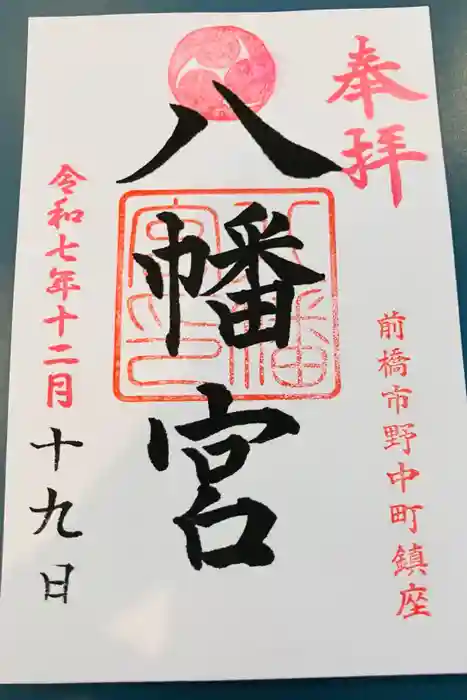 奉拝
前橋市野中町鎮座
八幡宮
八幡宮印
令和七年十二月十九日